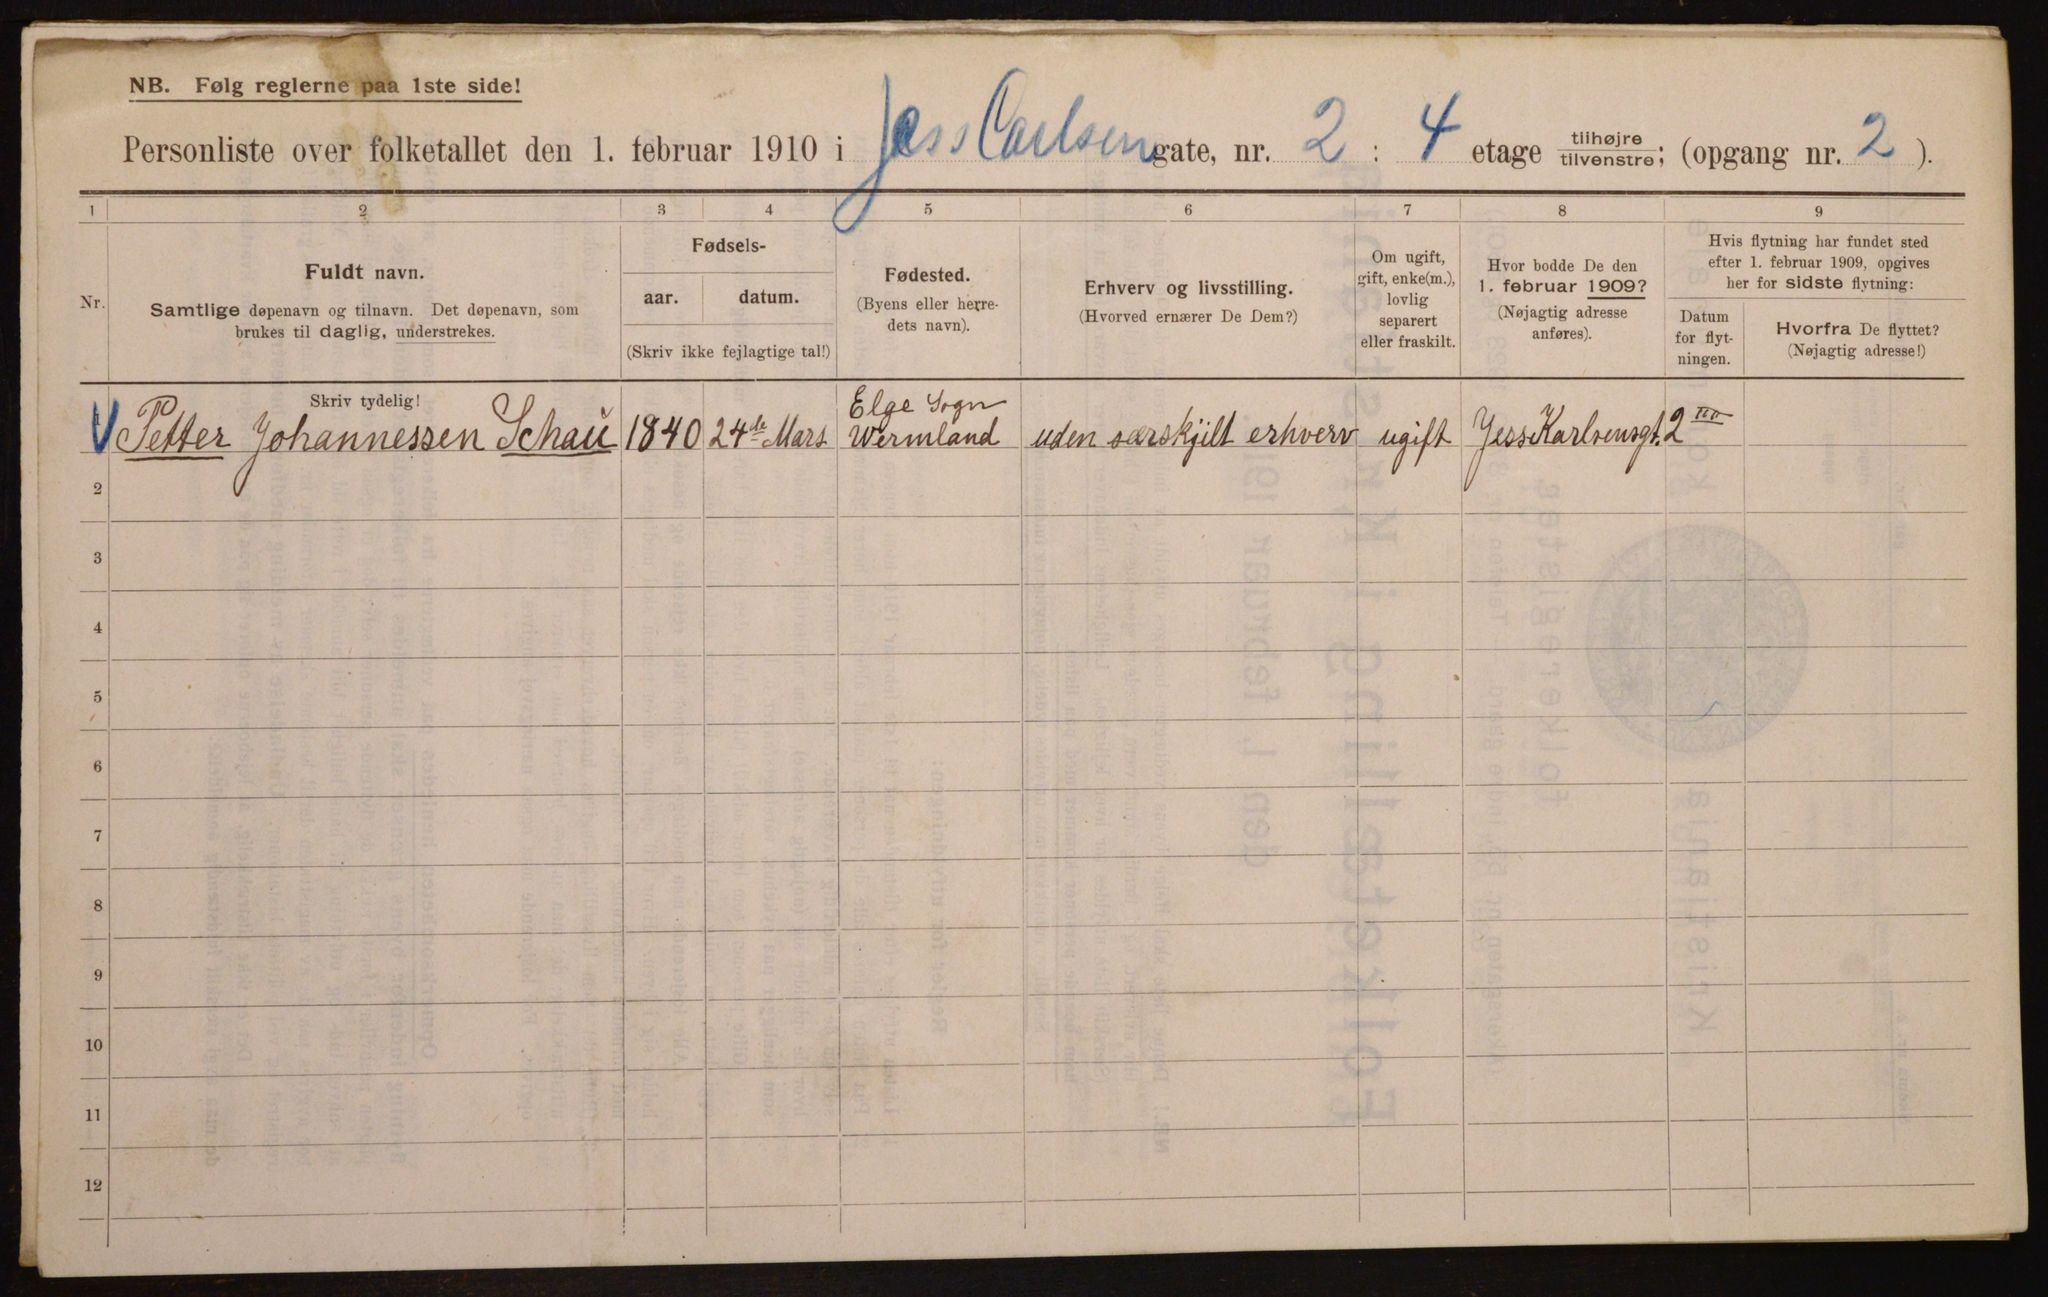 NB. Følg reglerne paa 1ste side!
Personliste over folketallet den 1. februar 1910 i Jess Carlsens gate, nr. 2 : 4 etage tilhøjre/tilvenstre; (opgang nr. 2).
1 2 3 4 5 6 7 8 9
Nr.
Fuldt navn.
Samtlige døpenavn og tilnavn. Det døpenavn, som
brukes til daglig, understrekes.
Fødsels-
aar. datum.
(Skriv ikke fejlagtige tal!)
Fødested.
(Byens eller herre-
dets navn).
Erhverv og livsstilling.
(Hvorved ernærer De Dem?)
Om ugift,
gift, enke(m.),
lovlig
separert
eller fraskilt.
Hvor bodde De den
1. februar 1909?
(Nøjagtig adresse
anføres).
Hvis flytning har fundet sted
efter 1. februar 1909, opgives
her for sidste flytning:
Datum
for flyt-
ningen.
Hvorfra De flyttet?
(Nøjagtig adresse!)
Skriv tydelig!
Elge Sogn
Petter Johannessen Schau 1840 24de Mars Wermland uden særskjilt erhverv ugift Jess Karlsensgt. 2
2
3
4
5
6
7
8
9
10
11
12